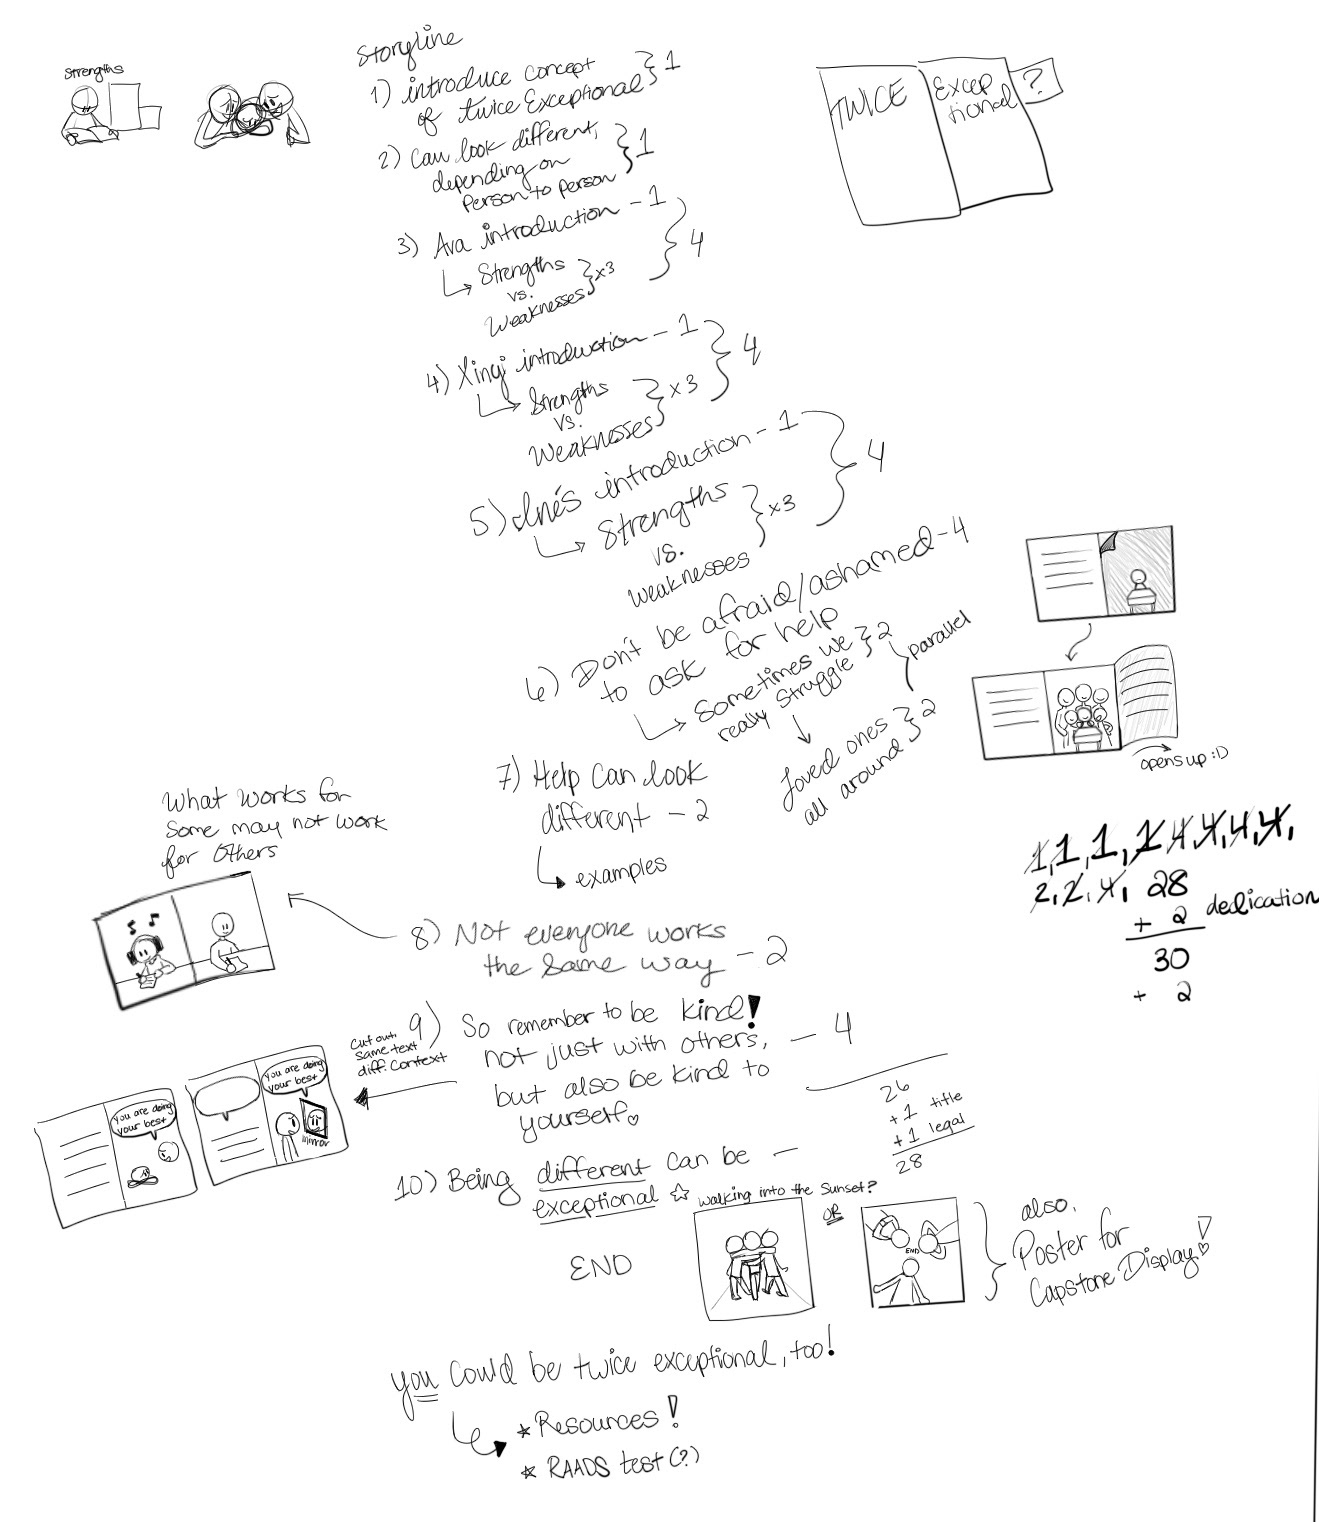 Storyline
Strengths
1) introduce concept
of twice Exceptional } 1
2) Can look different,
depending on
Person to person } 1
3) Ava introduction - 1
↳ Strengths
vs.
Weaknesses } x3
} 4
4) Xinyi introduction - 1
↳ Strengths
vs.
Weaknesses } x3
} 4
5) Inés introduction - 1
↳ Strengths
vs.
weaknesses } x3
} 4
6) Don't be afraid/ashamed - 4
to ask for help
↳ Sometimes we
really struggle } 2
parallel
↓
Loved ones
all around } 2
7) Help can look
different - 2
↳ examples
8) Not everyone works
the same way - 2
What works for
some may not work
for others
9) So remember to be kind!
not just with others, - 4
but also be kind to
yourself♡
cut out
same text
diff. context
you are doing
your best
you are doing
your best
mirror
10) Being different can be -
exceptional ☆
walking into the sunset?
OR
END
END
also,
Poster for
Capstone Display!
you could be twice exceptional, too!
↳ * Resources!
* RAADS test(?)
TWICE
Excep
tional
?
opens up :D
1, 1, 1, 1 4, 4, 4, 4,
2, 2, 4, 28
+ 2 dedication
30
+ 2
26
+1 title
+1 legal
28